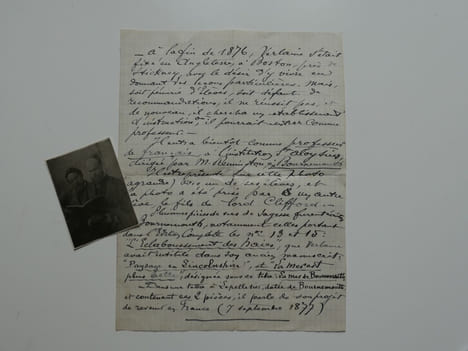 — à la fin de 1876, Verlaine s'était
fixé en Angleterre, à Boston, près de
Stickney, avec le désir d'y vivre en
donnant des leçons particulières. Mais,
soit pénurie d'élèves, soit défaut de
recommandations, il ne réussit pas, et
de nouveau, il chercha un établissement
d'instruction, où il pourrait entrer comme
professeur. —
Il entra bientôt comme professeur
de français à l'institution St Aloysius,
dirigée par M. Remington à Bournemouth
C'est représenté sur cette photo
agrandie) avec un de ses élèves, et
la photo a été prise par un autre
élève, le fils de lord Clifford —
Plusieurs pièces de vers de Sagesse furent
Bournemouth, notamment celles portant
dans l'Edit. Complète les nos 13 et 15:
"L'Echelonnement des Haies", que Verlaine
avait intitulé dans son ancien manuscrit:
"Paysage en Lincolnshire", et "la Mer est
plus belle", désignée sous ce titre: La mer de Bournemouth
— Dans une lettre à Lepelletier, datée de Bournemouth
et contenant ces 2 pièces, il parle de son projet
de revenir en France (7 septembre 1877)